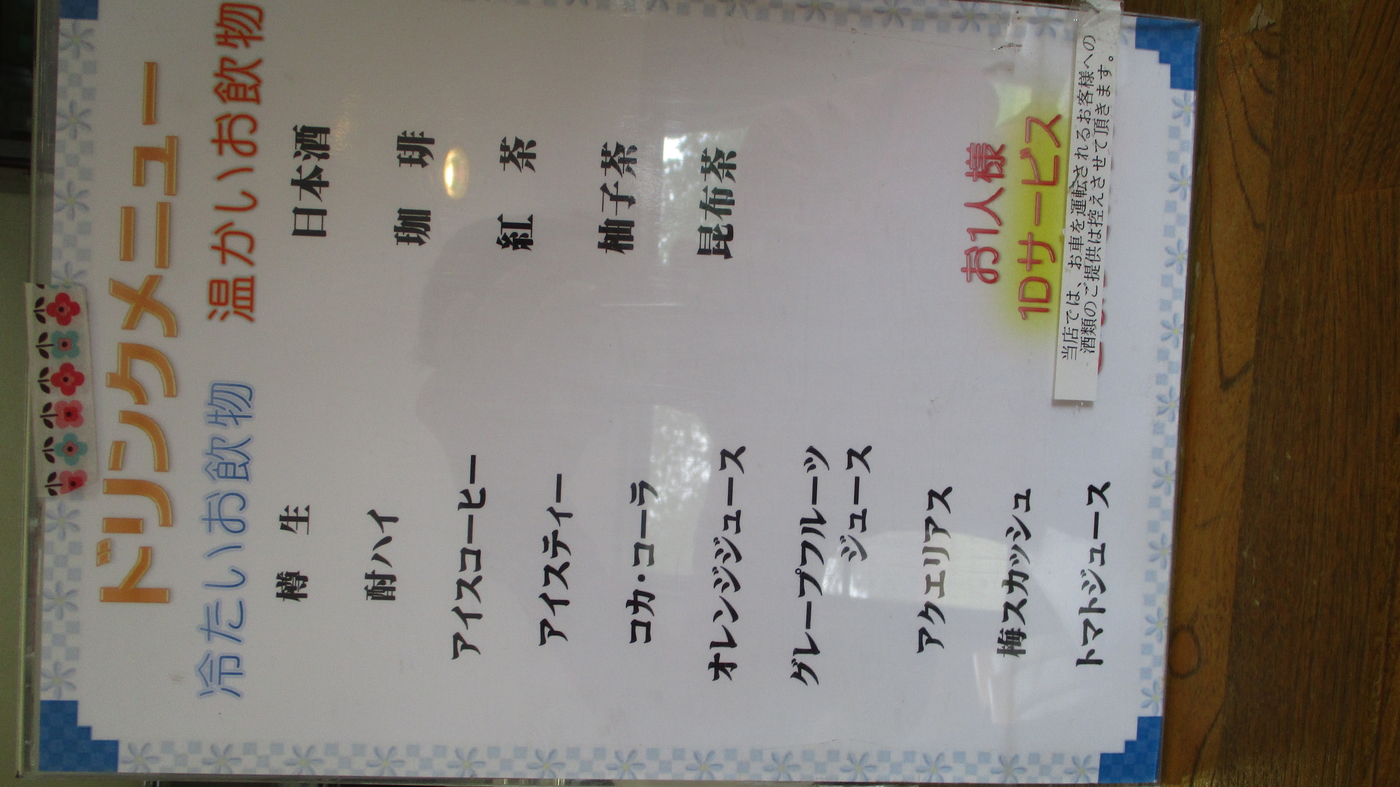 ドリンクメニュー
冷たいお飲物
樽 生
酎ハイ
アイスコーヒー
アイスティー
コカ・コーラ
オレンジジュース
グレープフルーツ
ジュース
アクエリアス
梅スカッシュ
トマトジュース
温かいお飲物
日本酒
珈 琲
紅 茶
柚子茶
昆布茶
お1人様
1Dサービス
当店では、お車を運転されるお客様への
酒類のご提供は控えさせて頂きます。